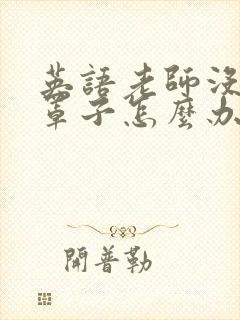 英語老師沒
罩子怎麼办
開普勒